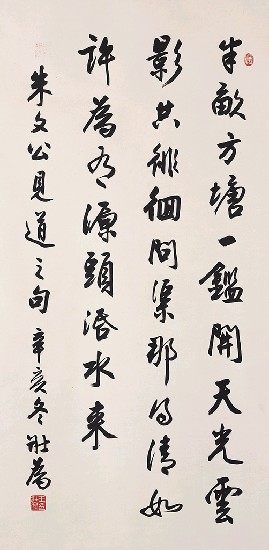 半畝方塘一鑑開天光雲
影共徘徊問渠那得清如
許為有源頭活水來
朱文公見道之句 辛亥冬 壯為